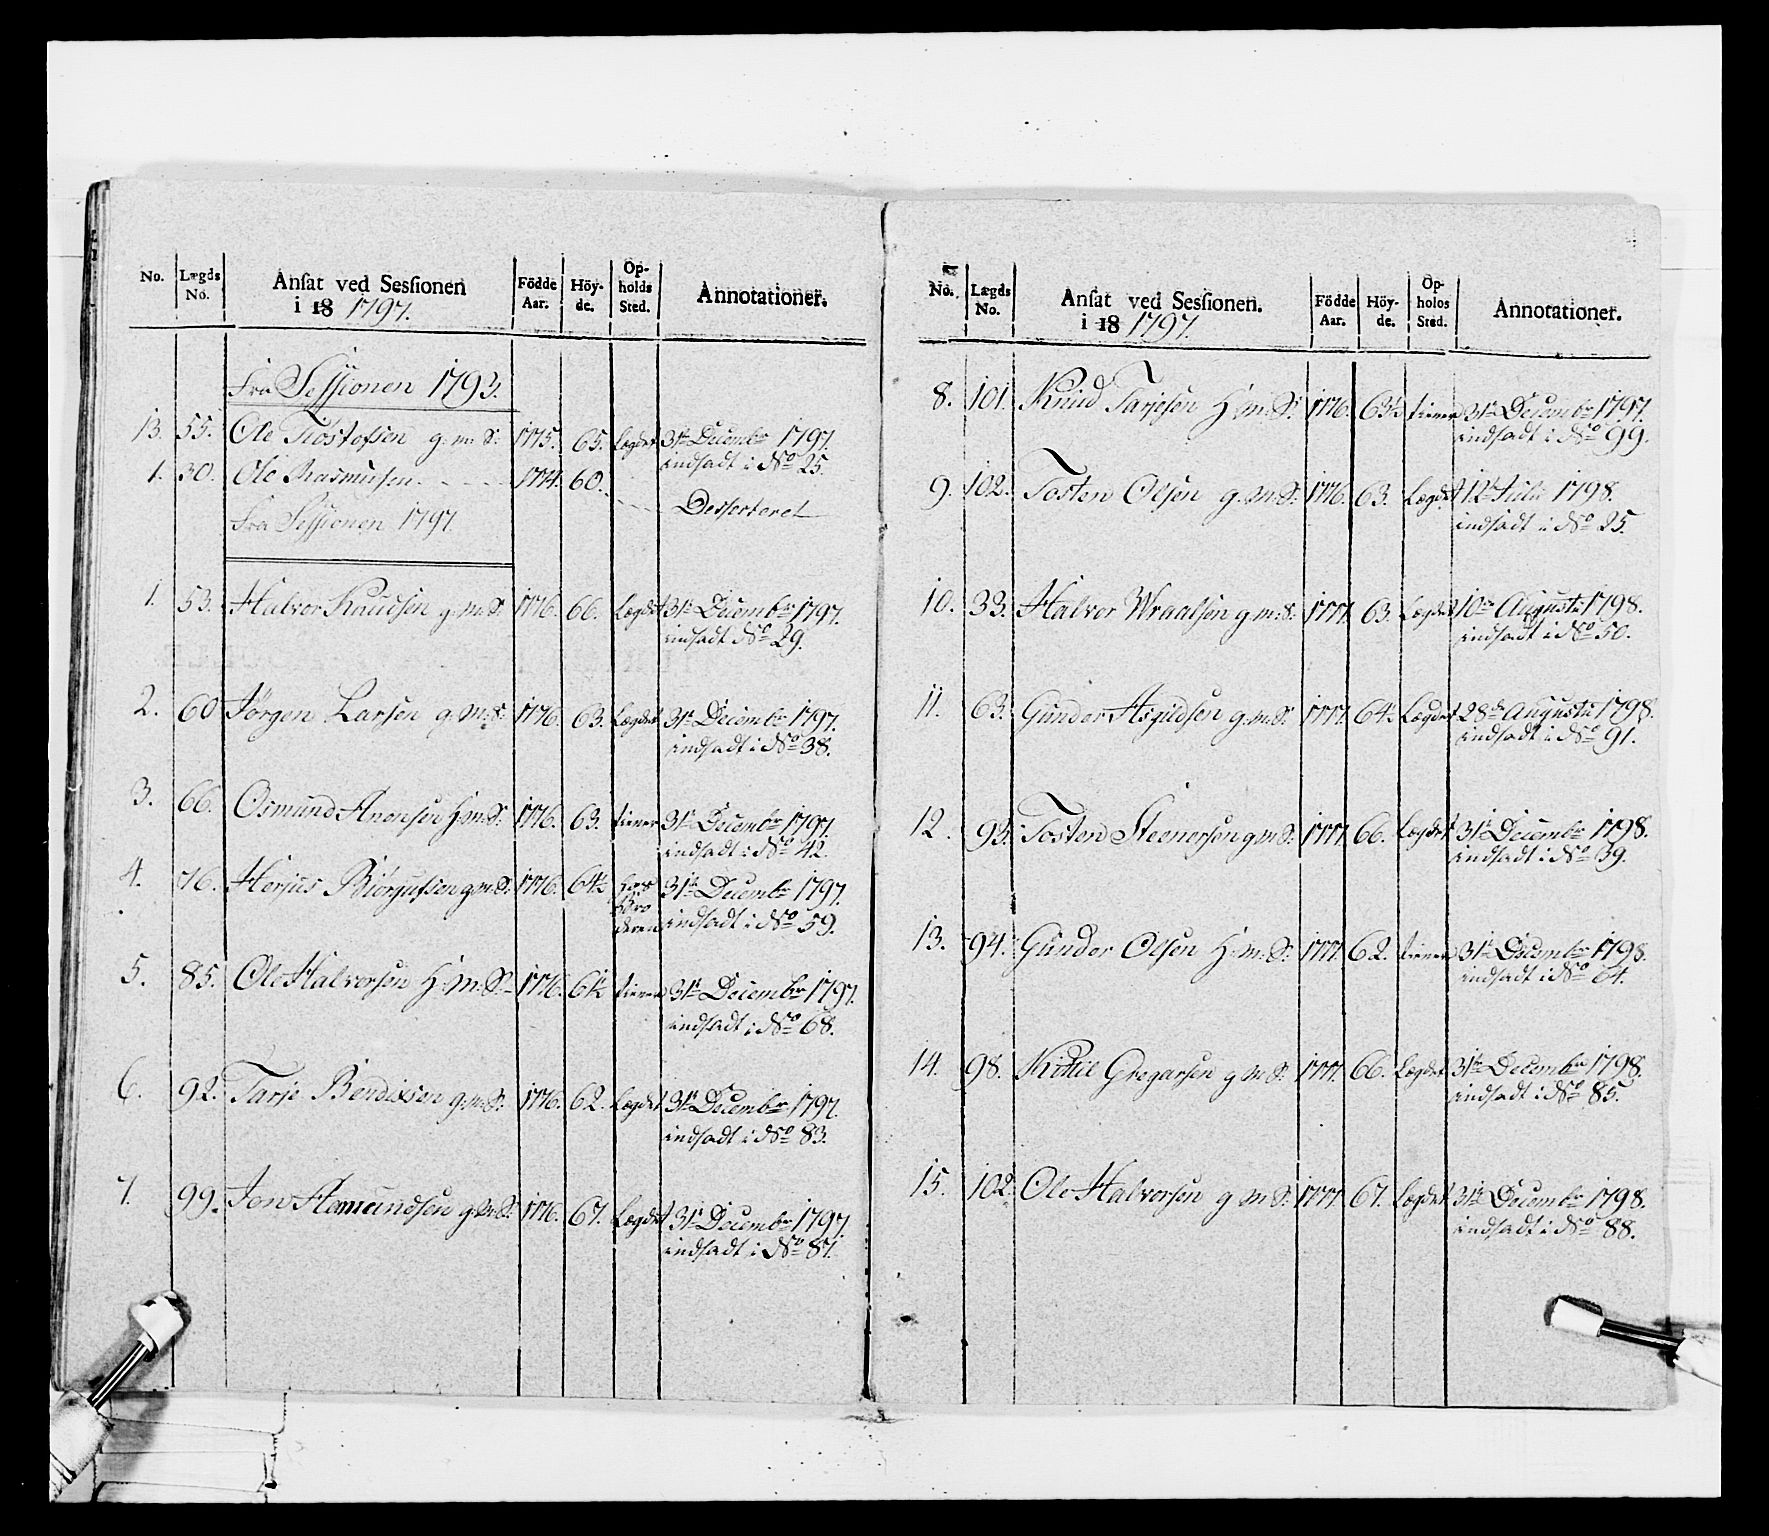 No. Lægds No. Ansat ved Sessionen i 18 1797. Födde Aar. Höy-de. Op-holds Sted. Annotationer.
Fra Sessionen 1793.
13. 55. Ole Tiostofsen g: m: S: 1775. 65. Lægdet 31te Decembr 1797.
indsadt i No 25.
1. 30. Ole Rasmusen 1774. 60.
Desserteret
Fra Sessionen 1797
1. 53. Halvor Knudsen g: m: S: 1776. 66. Lægdet 31te Decembr 1797.
indsadt No 29.
2. 60 Jørgen Larsen g: m: S: 1776. 63. Lægdet 31te Decembr 1797.
indsadt i No 38.
3. 66. Osmund Anonsen H: m: S: 1776. 63. tiener 31te Decembr 1797.
indsadt i No 42.
4. 76. Herjus Biörgufsen g: m: S: 1776. 64½ hos 31te Decembr 1797.
Bro
deren indsadt i No 59.
5. 85. Ole Halvorsen H: m: S: 1776. 61½ tiener 31te Decembr 1797.
indsadt i No 68.
6. 92. Tarje Bendixsen g: m: S: 1776. 62. Lægdet 31te Decembr 1797.
indsadt i No 83.
7. 99. Jon Amundsen g: m: S: 1776. 67. Lægdet 31te Decembr 1797.
indsadt i No 87.
No. Lægds No. Ansat ved Sessionen. i 18 1797. Födde Aar. Höy-de. Op-holds Sted. Annotationer.
8. 101. Knud Tarjesen H: m: S: 1776. 63½ tiener 31te Decembr 1797.
indsadt i No 99.
9. 102. Tosten Olsen g: m: S: 1776. 63. Lægdet 12te Julii 1798.
indsadt i No 25.
10. 33. Halvor Wraalsen g: m: S: 1777. 63. Lægdet 10de Augusti 1798.
indsadt i No 50.
11. 63. Gunder Asgildsen g: m: S: 1777. 64½ Lægdet 28de Augustii 1798.
indsadt i No 91.
12. 93. Tosten Steenersen g: m: S: 1777. 66. Lægdet 31te Decembr 1798.
indsadt i No 39.
13. 94. Gunder Olsen H: m: S: 1777. 62. tiener 31te Decembr 1798.
indsadt i No 64.
14. 98. Kittil Gregarsen g: m: S: 1777. 66. Lægdet 31te Decembr 1798.
indsadt i No 85.
15. 102. Ole Halvorsen g: m: S: 1777. 67. Lægdet 31te Decembr 1798.
indsadt i No 88.